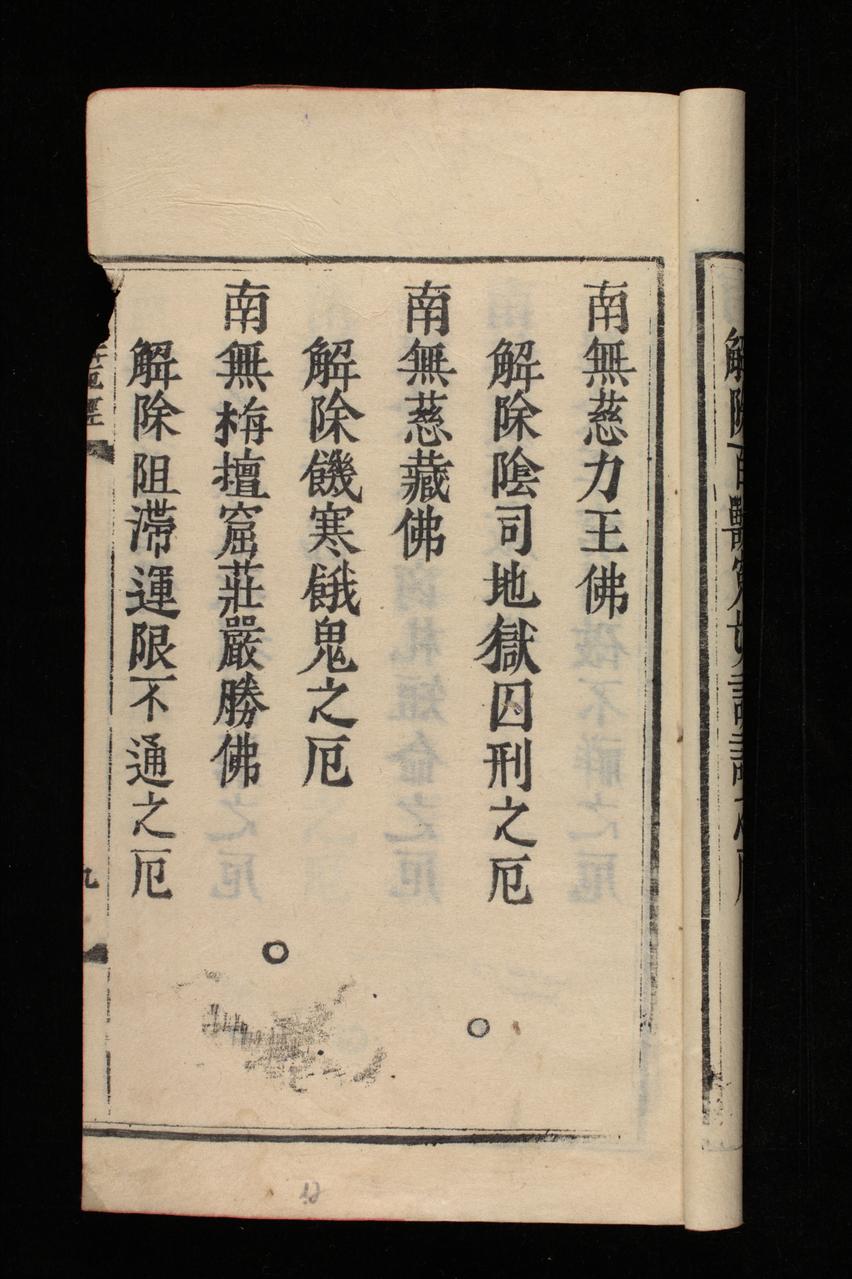 解除百獸
南無慈力王佛
解除陰司地獄囚刑之厄
南無慈藏佛
解除饑寒餓鬼之厄
南無栴檀窟莊嚴勝佛
解除阻滯運限不通之厄
厄經
九